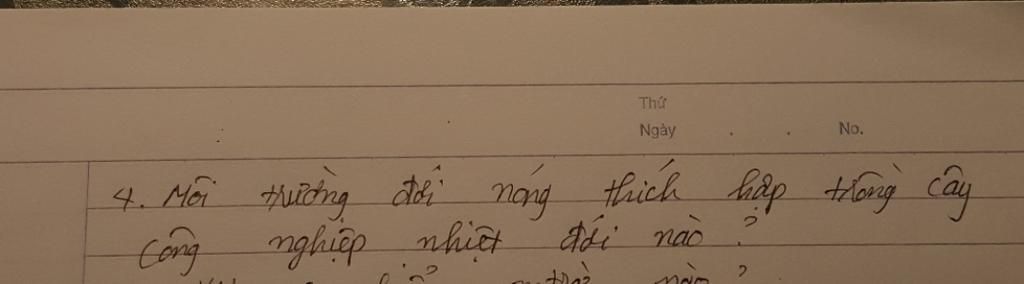 Thứ
Ngày . . No.
4. Môi trường đới nóng thích hợp trồng cây
công nghiệp nhiệt đới nào?
nào?